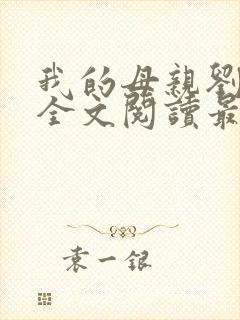 我的母親劉
全文閱讀最
袁一銀